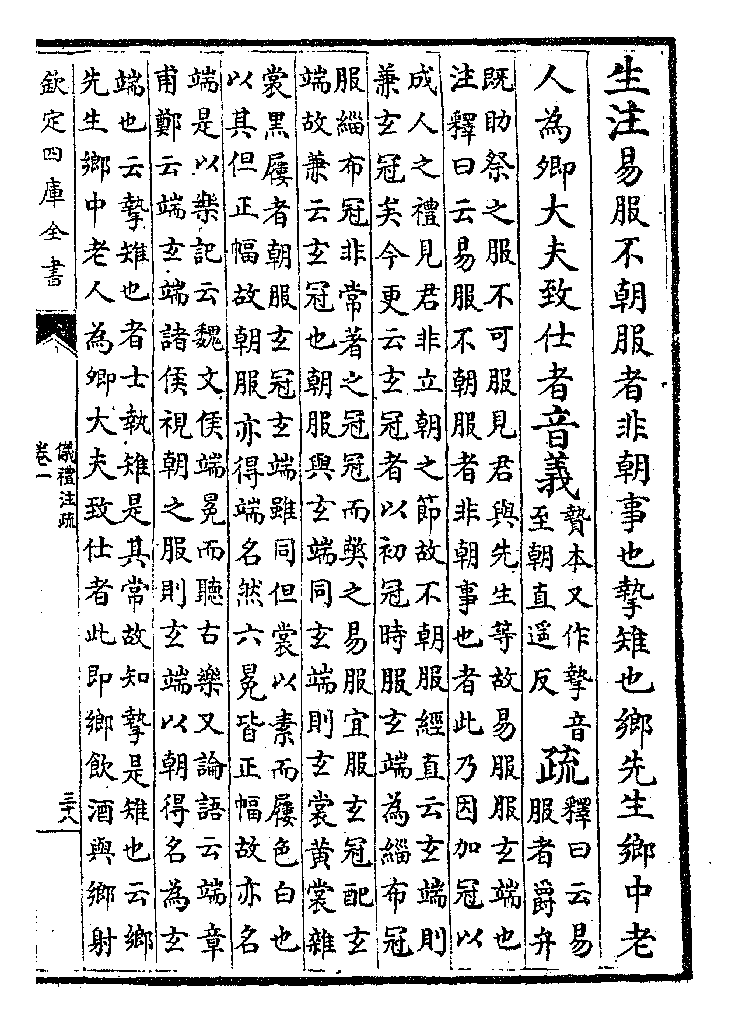 生注易服不朝服者非朝事也摯雉也鄉先生鄉中老
人為卿大夫致仕者音義
贄本又作摯音
至朝直遥反
疏
釋曰云易
服者爵弁
既助祭之服不可服見君與先生等故易服服玄端也
注釋曰云易服不朝服者非朝事也者此乃因加冠以
成人之禮見君非立朝之節故不朝服經直云玄端則
兼玄冠矣今更云玄冠者以初冠時服玄端為緇布冠
服緇布冠非常著之冠冠而獘之易服宜服玄冠配玄
端故兼云玄冠也朝服與玄端同玄端則玄裳黄裳雜
裳黑屨者朝服玄冠玄端雖同但裳以素而屨色白也
以其但正幅故朝服亦得端名然六冕皆正幅故亦名
端是以樂記云魏文侯端冕而聽古樂又論語云端章
甫鄭云端玄端諸侯視朝之服則玄端以朝得名為玄
端也云摯雉也者士執雉是其常故知摯是雉也云鄉
先生鄉中老人為卿大夫致仕者此即鄉飲酒與鄉射
欽定四庫全書
儀禮注疏
卷一
三十八